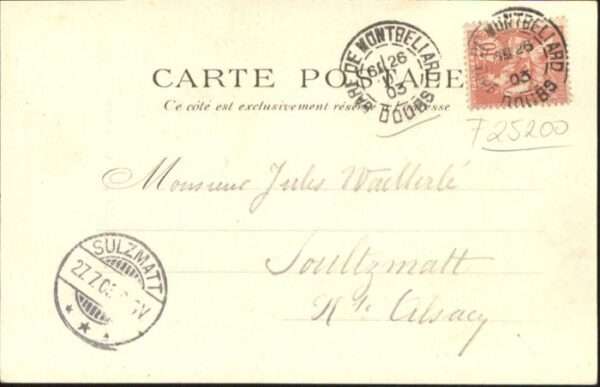 CARTE POSTALE
Ce côté est exclusivement réservé à l'adresse
GARE DE MONTBELIARD
26
03
DOUBS
GARE DE MONTBELIARD
26
03
DOUBS
F25200
Monsieur Jules
Soultzmatt
Hte Alsace
SULZMATT
27.7.03